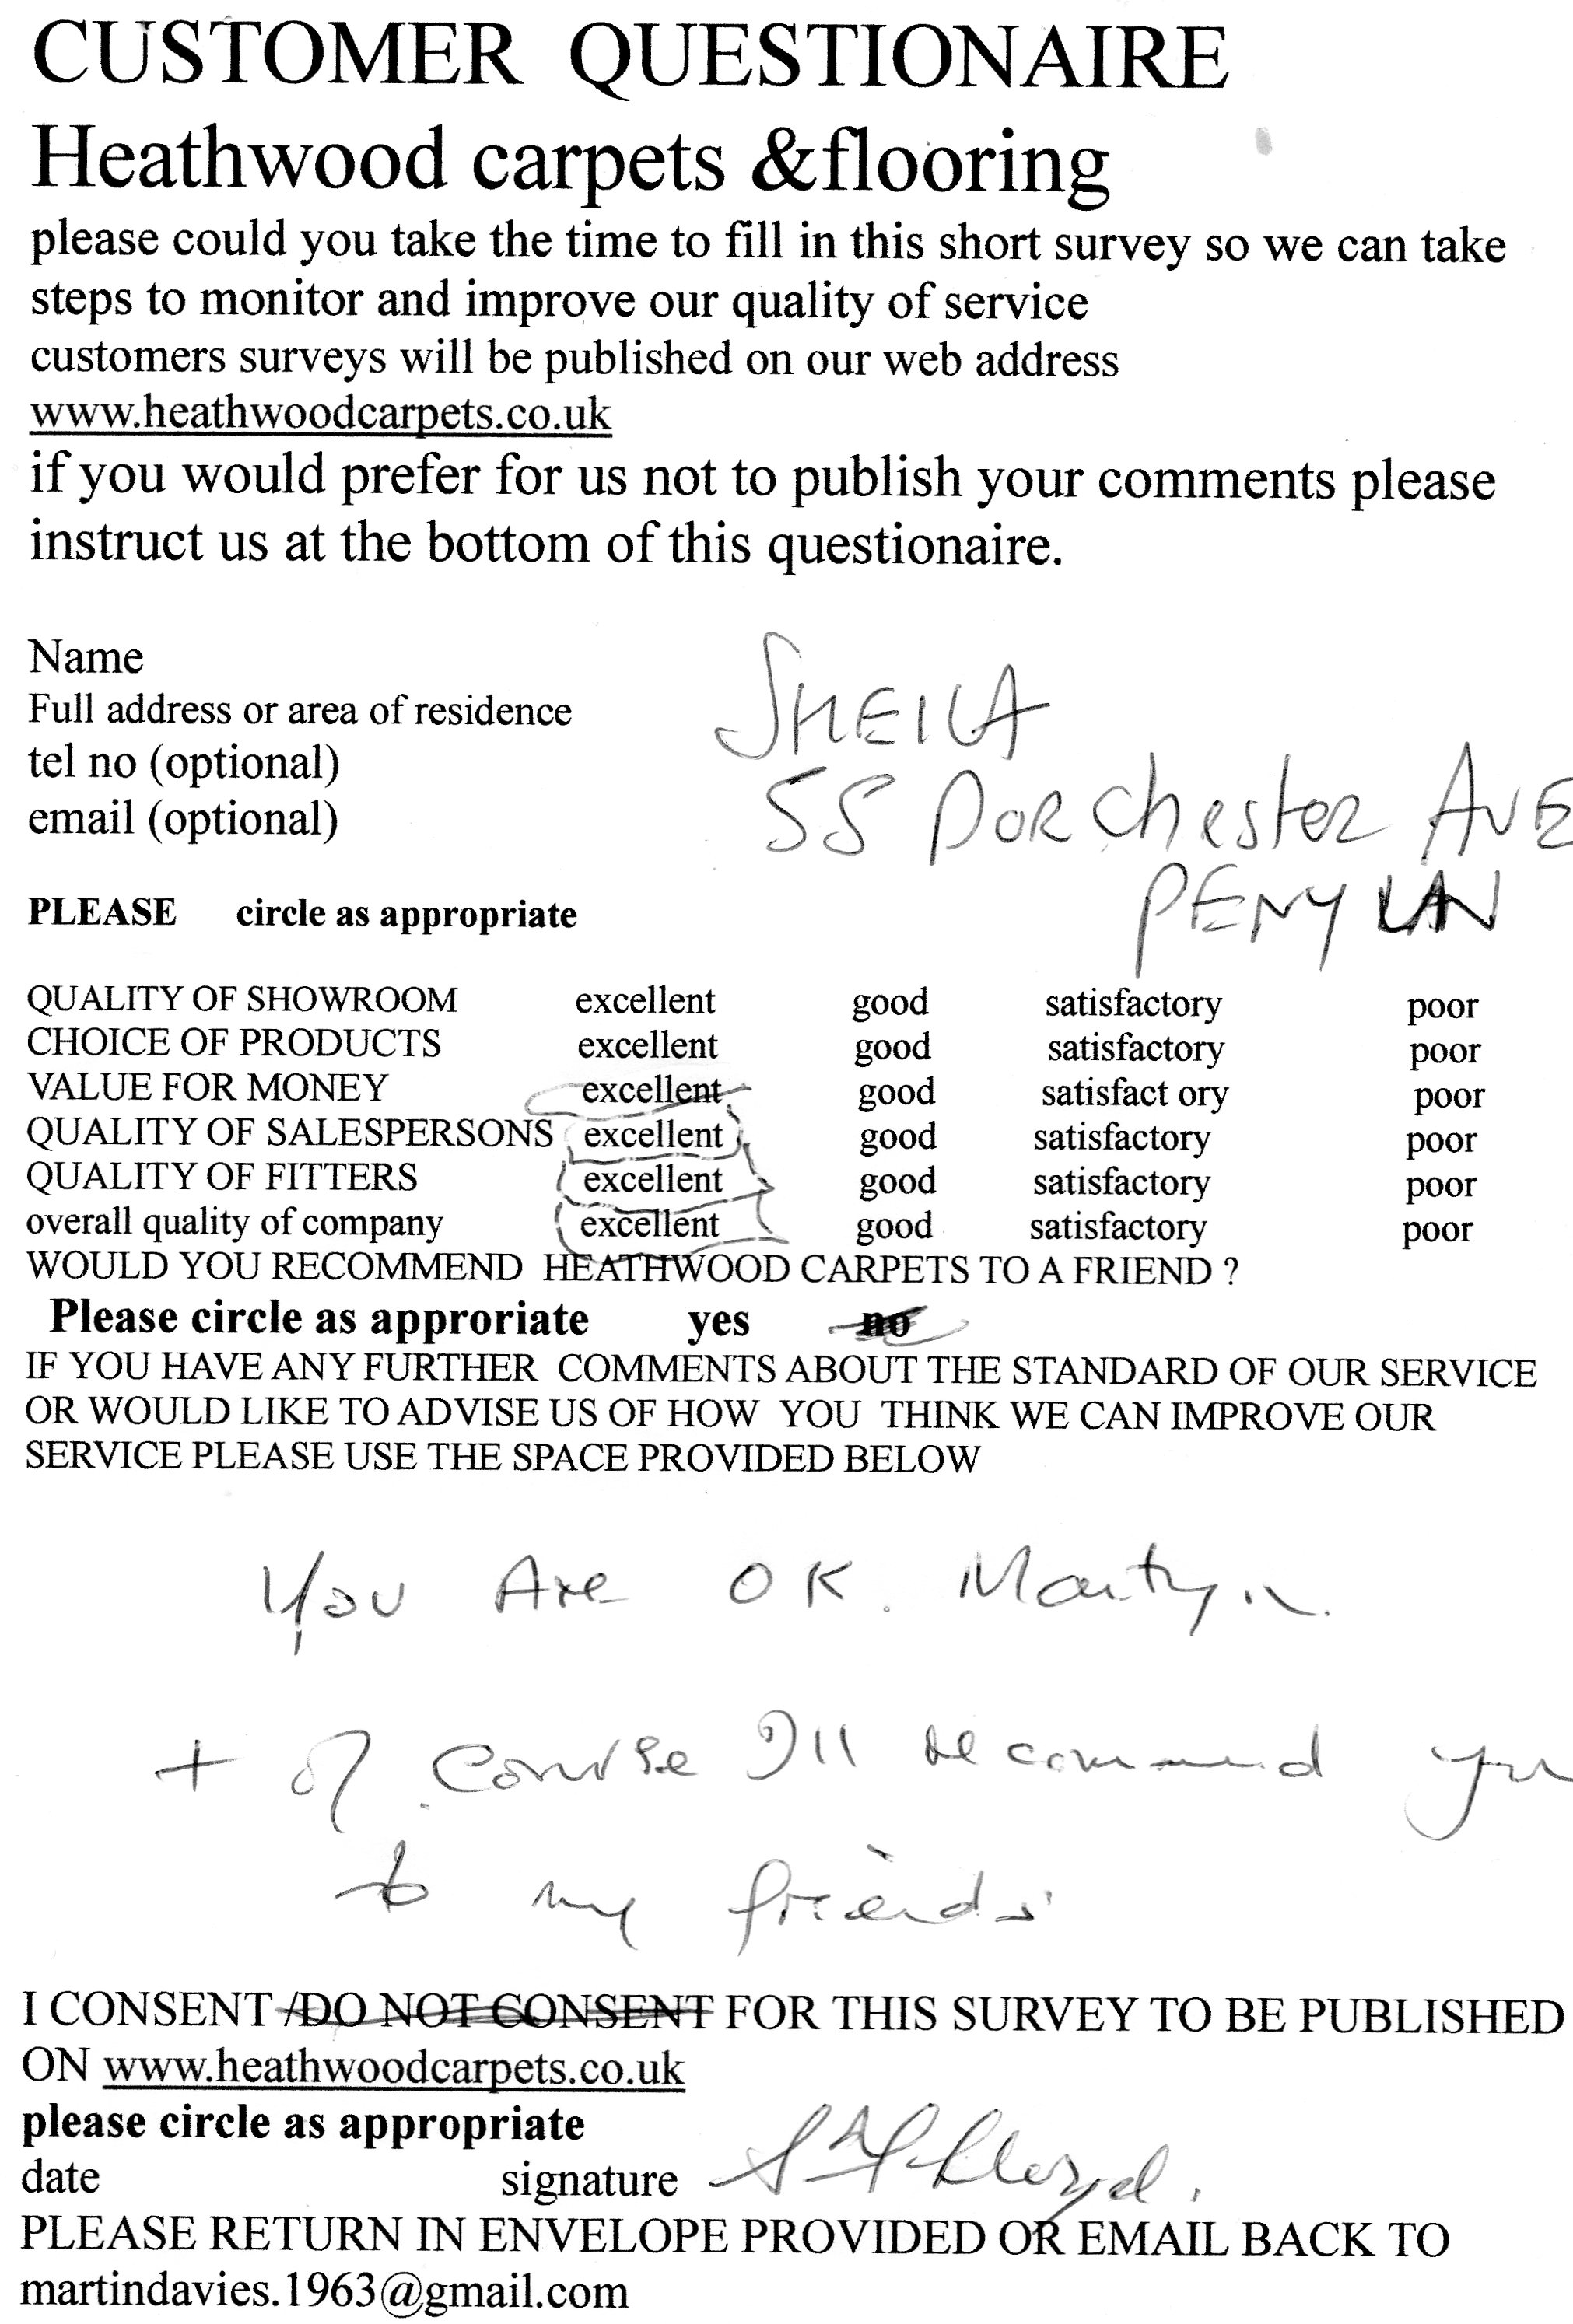 CUSTOMER QUESTIONAIRE
Heathwood carpets &flooring
please could you take the time to fill in this short survey so we can take
steps to monitor and improve our quality of service
customers surveys will be published on our web address
www.heathwoodcarpets.co.uk
if you would prefer for us not to publish your comments please
instruct us at the bottom of this questionaire.
Name
SHEILA
Full address or area of residence
tel no (optional)
55 DORchester AVE
email (optional)
PENYLAN
PLEASE circle as appropriate
QUALITY OF SHOWROOM excellent good satisfactory poor
CHOICE OF PRODUCTS excellent good satisfactory poor
VALUE FOR MONEY excellent good satisfact ory poor
QUALITY OF SALESPERSONS excellent good satisfactory poor
QUALITY OF FITTERS excellent good satisfactory poor
overall quality of company excellent good satisfactory poor
WOULD YOU RECOMMEND HEATHWOOD CARPETS TO A FRIEND ?
Please circle as approriate yes no
IF YOU HAVE ANY FURTHER COMMENTS ABOUT THE STANDARD OF OUR SERVICE
OR WOULD LIKE TO ADVISE US OF HOW YOU THINK WE CAN IMPROVE OUR
SERVICE PLEASE USE THE SPACE PROVIDED BELOW
You Are OK. Martyn.
+ of course I'll recommend you
to my friends
I CONSENT /DO NOT CONSENT FOR THIS SURVEY TO BE PUBLISHED
ON www.heathwoodcarpets.co.uk
please circle as appropriate
date signature Lloyd.
PLEASE RETURN IN ENVELOPE PROVIDED OR EMAIL BACK TO
martindavies.1963@gmail.com